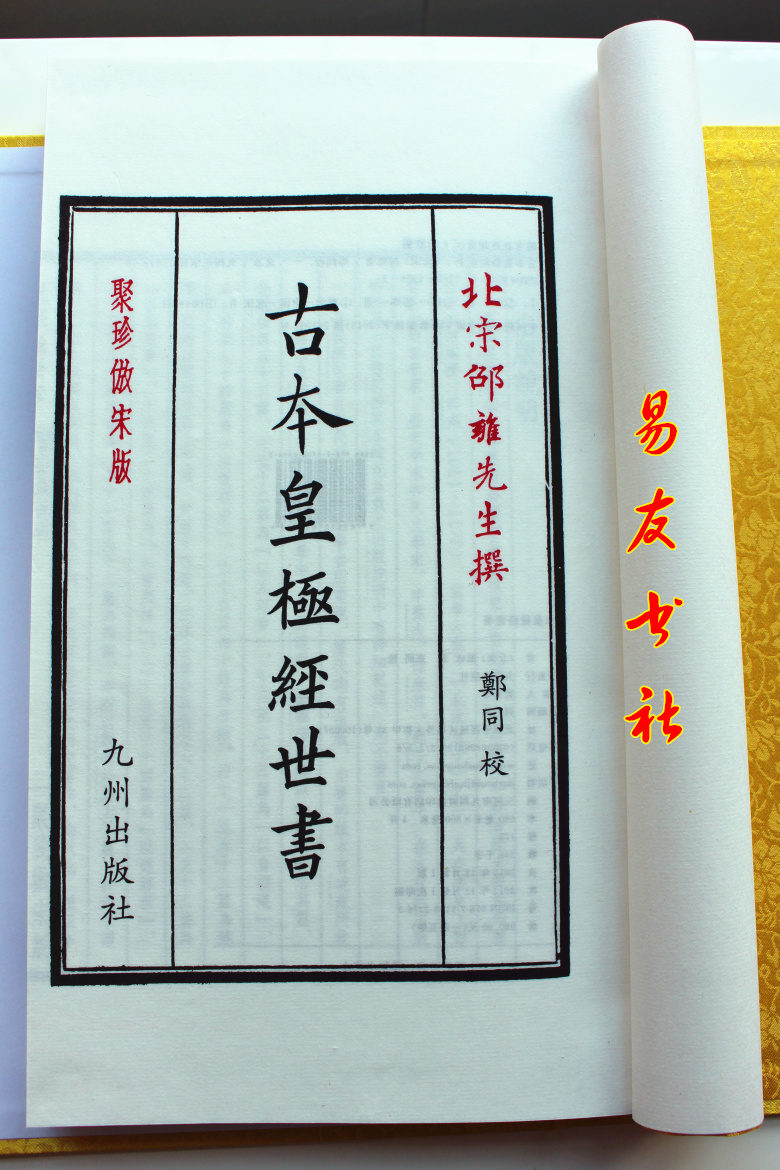 易友书社
北宋邵雍先生撰
鄭同校
古本皇極經世書
聚珍倣宋版
九州出版社